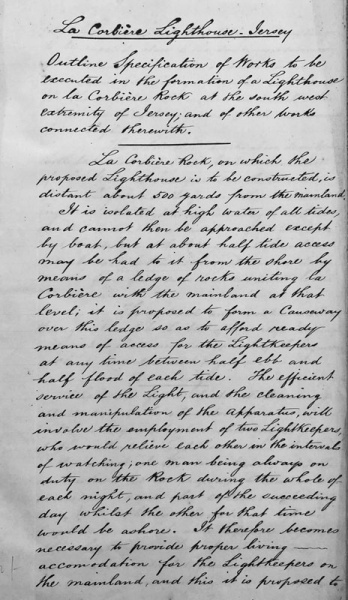 La Corbière Lighthouse - Jersey
Outline Specification of Works to be
executed in the formation of a Lighthouse
on la Corbière Rock at the south west
extremity of Jersey; and of other works
connected therewith.
La Corbière Rock, on which the
proposed Lighthouse is to be constructed, is
distant about 500 yards from the mainland.
It is isolated at high water of all tides,
and cannot then be approached except
by boat, but at about half tide access
may be had to it from the shore by
means of a ledge of rocks uniting la
Corbière with the mainland at that
level; it is proposed to form a Causeway
over this ledge so as to afford ready
means of access for the Lightkeepers
at any time between half ebb and
half flood of each tide. The efficient
service of the Light, and the cleaning
and manipulation of the apparatus, will
involve the employment of two Lightkeepers,
who would relieve each other in the intervals
of watching; one man being always on
duty on the Rock during the whole of
each night, and part of the succeeding
day whilst the other for that time
would be ashore. It therefore becomes
necessary to provide proper living
accomodation for the Lightkeepers on
the mainland, and this it is proposed to